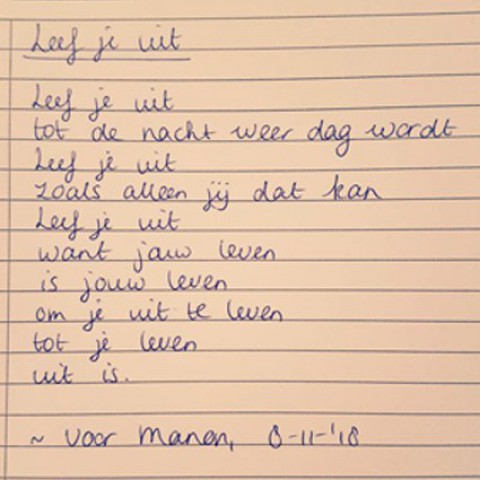 Leef je uit
Leef je uit
tot de nacht weer dag wordt
Leef je uit
zoals alleen jij dat kan
Leef je uit
want jouw leven
is jouw leven
om je uit te leven
tot je leven
uit is.
~ voor Manon, 8-11-'18